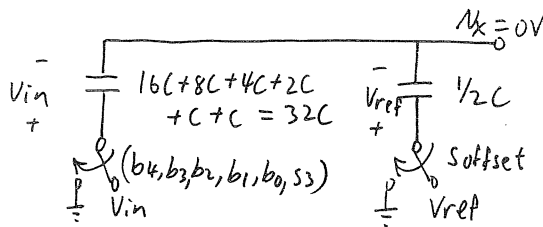 Nx=0V
-
Vin
+
16C+8C+4C+2C
+C+C=32C
-
Vref
+
1/2C
(b4,b3,b2,b1,b0,S3)
Vin
Soffset
Vref